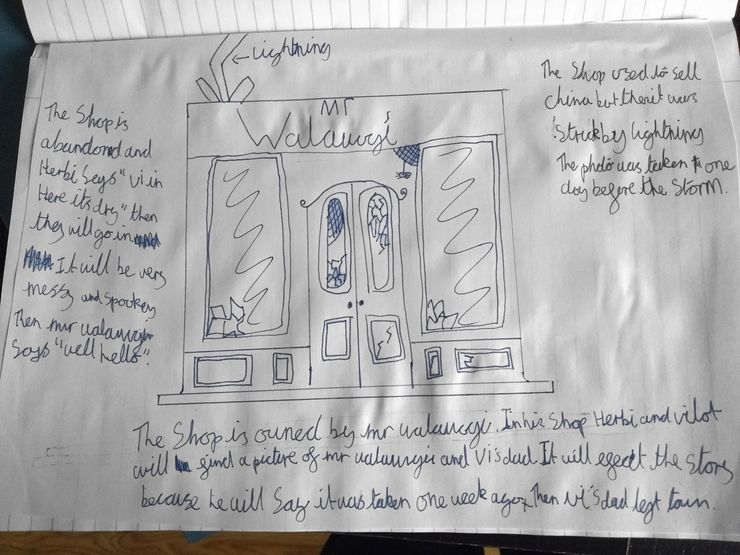 Lightning
Mr
Walawgi
The Shop is
abandond and
Herbi Says "Vi in
Here its dry" then
they will go in
It will be very
messy and spookey
Then mr walawgi
Says "well hello".
The Shop used to sell
china but then it was
Struck by lightning
The photo was taken one
day before the Storm.
The Shop is owned by mr walawgi. In his Shop Herbi and vilot
will find a picture of mr walawgi and Vi's dad. It will effect the Story
because he will Say it was taken one week ago, Then Vi's dad left town.